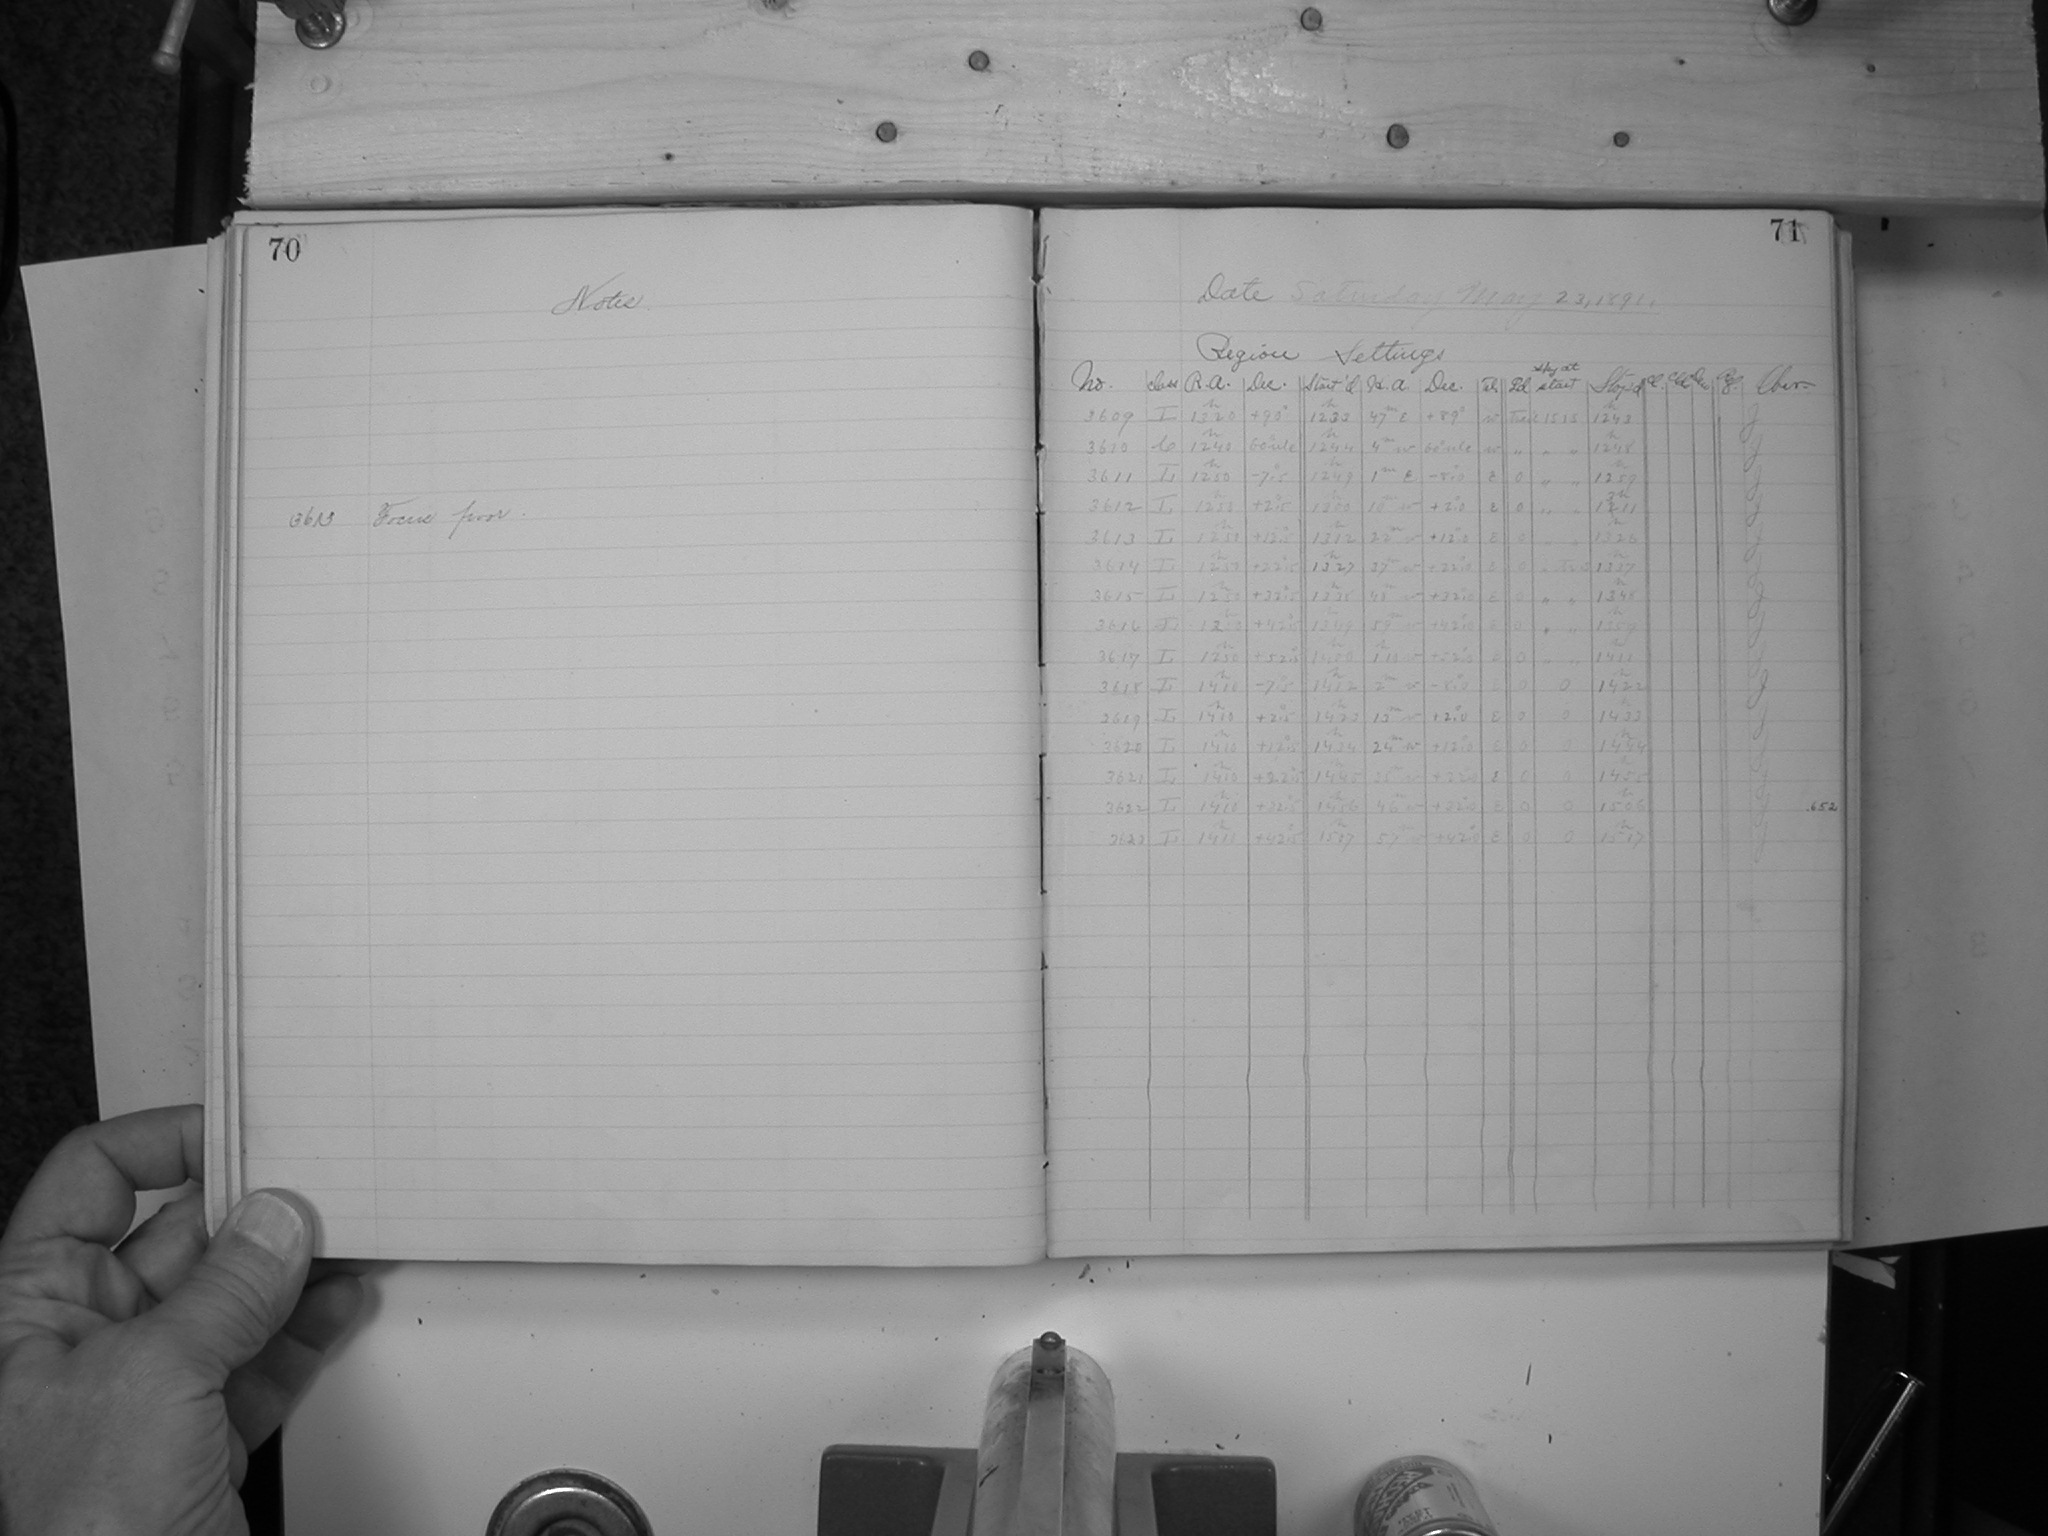 70
Notes
3613 Focus poor.
71
Date Saturday May 23, 1891.
Region Settings
No. Class R.A. Dec. Start'd H.A. Dec. Sky at start Stop'd Cl. Obser.
3609 I 1320 +90° 1233 47m E +89° w 1515 1243
3610 1240 1244 4m w w " " " 1248
3611 I 1250 -7.5 1249 1m E -8.0 E 0 " " 1259
3612 I 1250 +2.5 1300 10m w +2.0 E 0 " " 1311
3613 I 1250 +12.5 1312 w +12.0 E 0 " " 1326
3614 I 1250 +22.5 1327 37m w +22.0 E 0 1337
3615 I 1250 +32.5 1338 48m w +32.0 E 0 " " 1348
3616 I 1250 +42.5 1349 59m w +42.0 E 0 " " 1359
3617 I 1250 +52.5 1400 1 10 w +52.0 E 0 " " 1411
3618 I 1410 -7.5 1412 2m w -8.0 E 0 0 1422
3619 I 1410 +2.5 1423 13m w +2.0 E 0 0 1433
3620 I 1410 +12.5 1434 24m w +12.0 E 0 0 1444
3621 I 1410 +22.5 1445 35m w +22.0 E 0 0 1455
3622 I 1410 +32.5 1456 46m w +32.0 E 0 0 1506 .652
3623 I 1410 +42.5 1507 57m w +42.0 E 0 0 1517